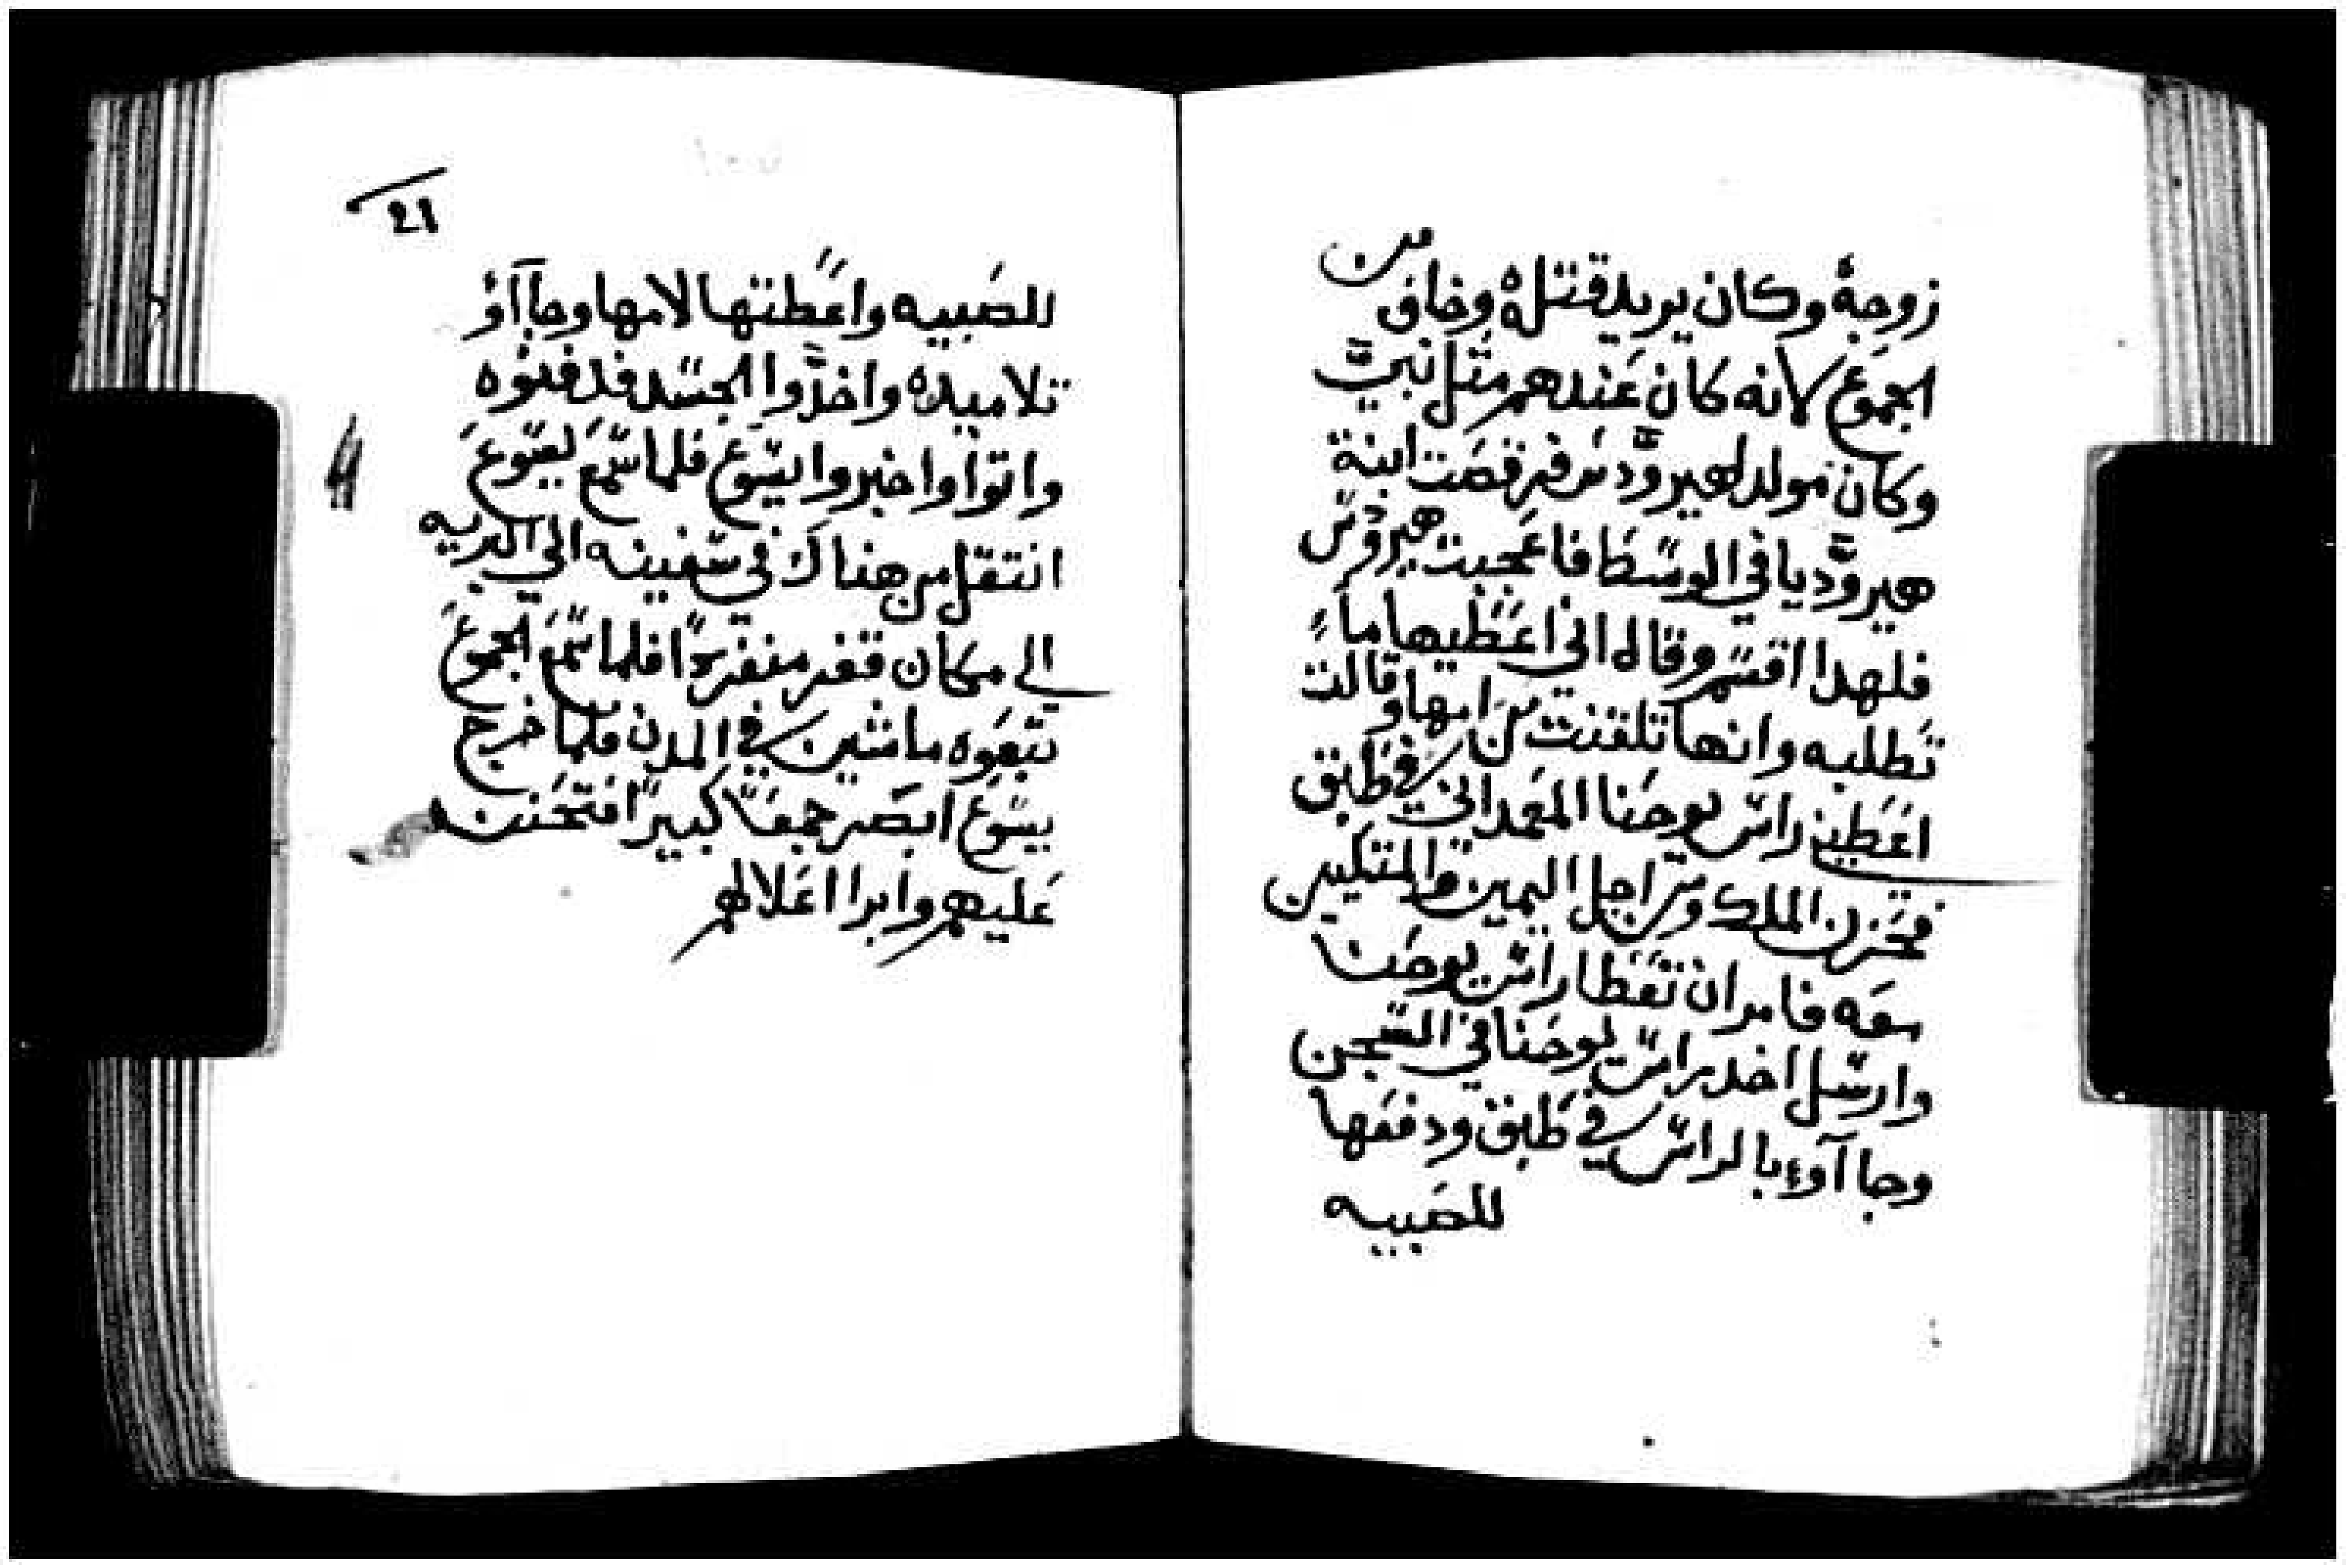 زوجةً وكان يريد قتلهُ وخاف من
الجموع لانه كان عندهم مثل نبيّ
وكان مولد لهيرودس فرقصت ابنة
هيروديا في الوسط فاعجبت هيرودس
فلهدا اقسم وقال اني اعطيها ما
تطلبه وانها تلقنت من امها وقالت
اعطيني راس يوحنا المعمداني في طبق
فحزن الملك ومن اجل اليمين والمتكيين
معه فامر ان تعطا راس يوحنا
وارسل اخد راس يوحنا في السجن
وجاآوء بالراس في طبق ودفعها
للصبيه
21
للصبيه واعطتها لامها وجاآؤ
تلاميده واخدوا الجسد فدفنوه
واتوا واخبروا يسوع فلما سمع يسوع
انتقل من هناك في سفينه الي البريه
الي مكان قفر منفردًا فلما سمع الجموع
تبعوه ماشين في المدن فلما خرج
يسوع ابصر جمعًا كبيرًا فتحنن
عليهم وابرا اعلالهم